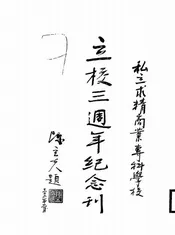 私立求精商業專科學校
立校三週年紀念刊
陳立夫題